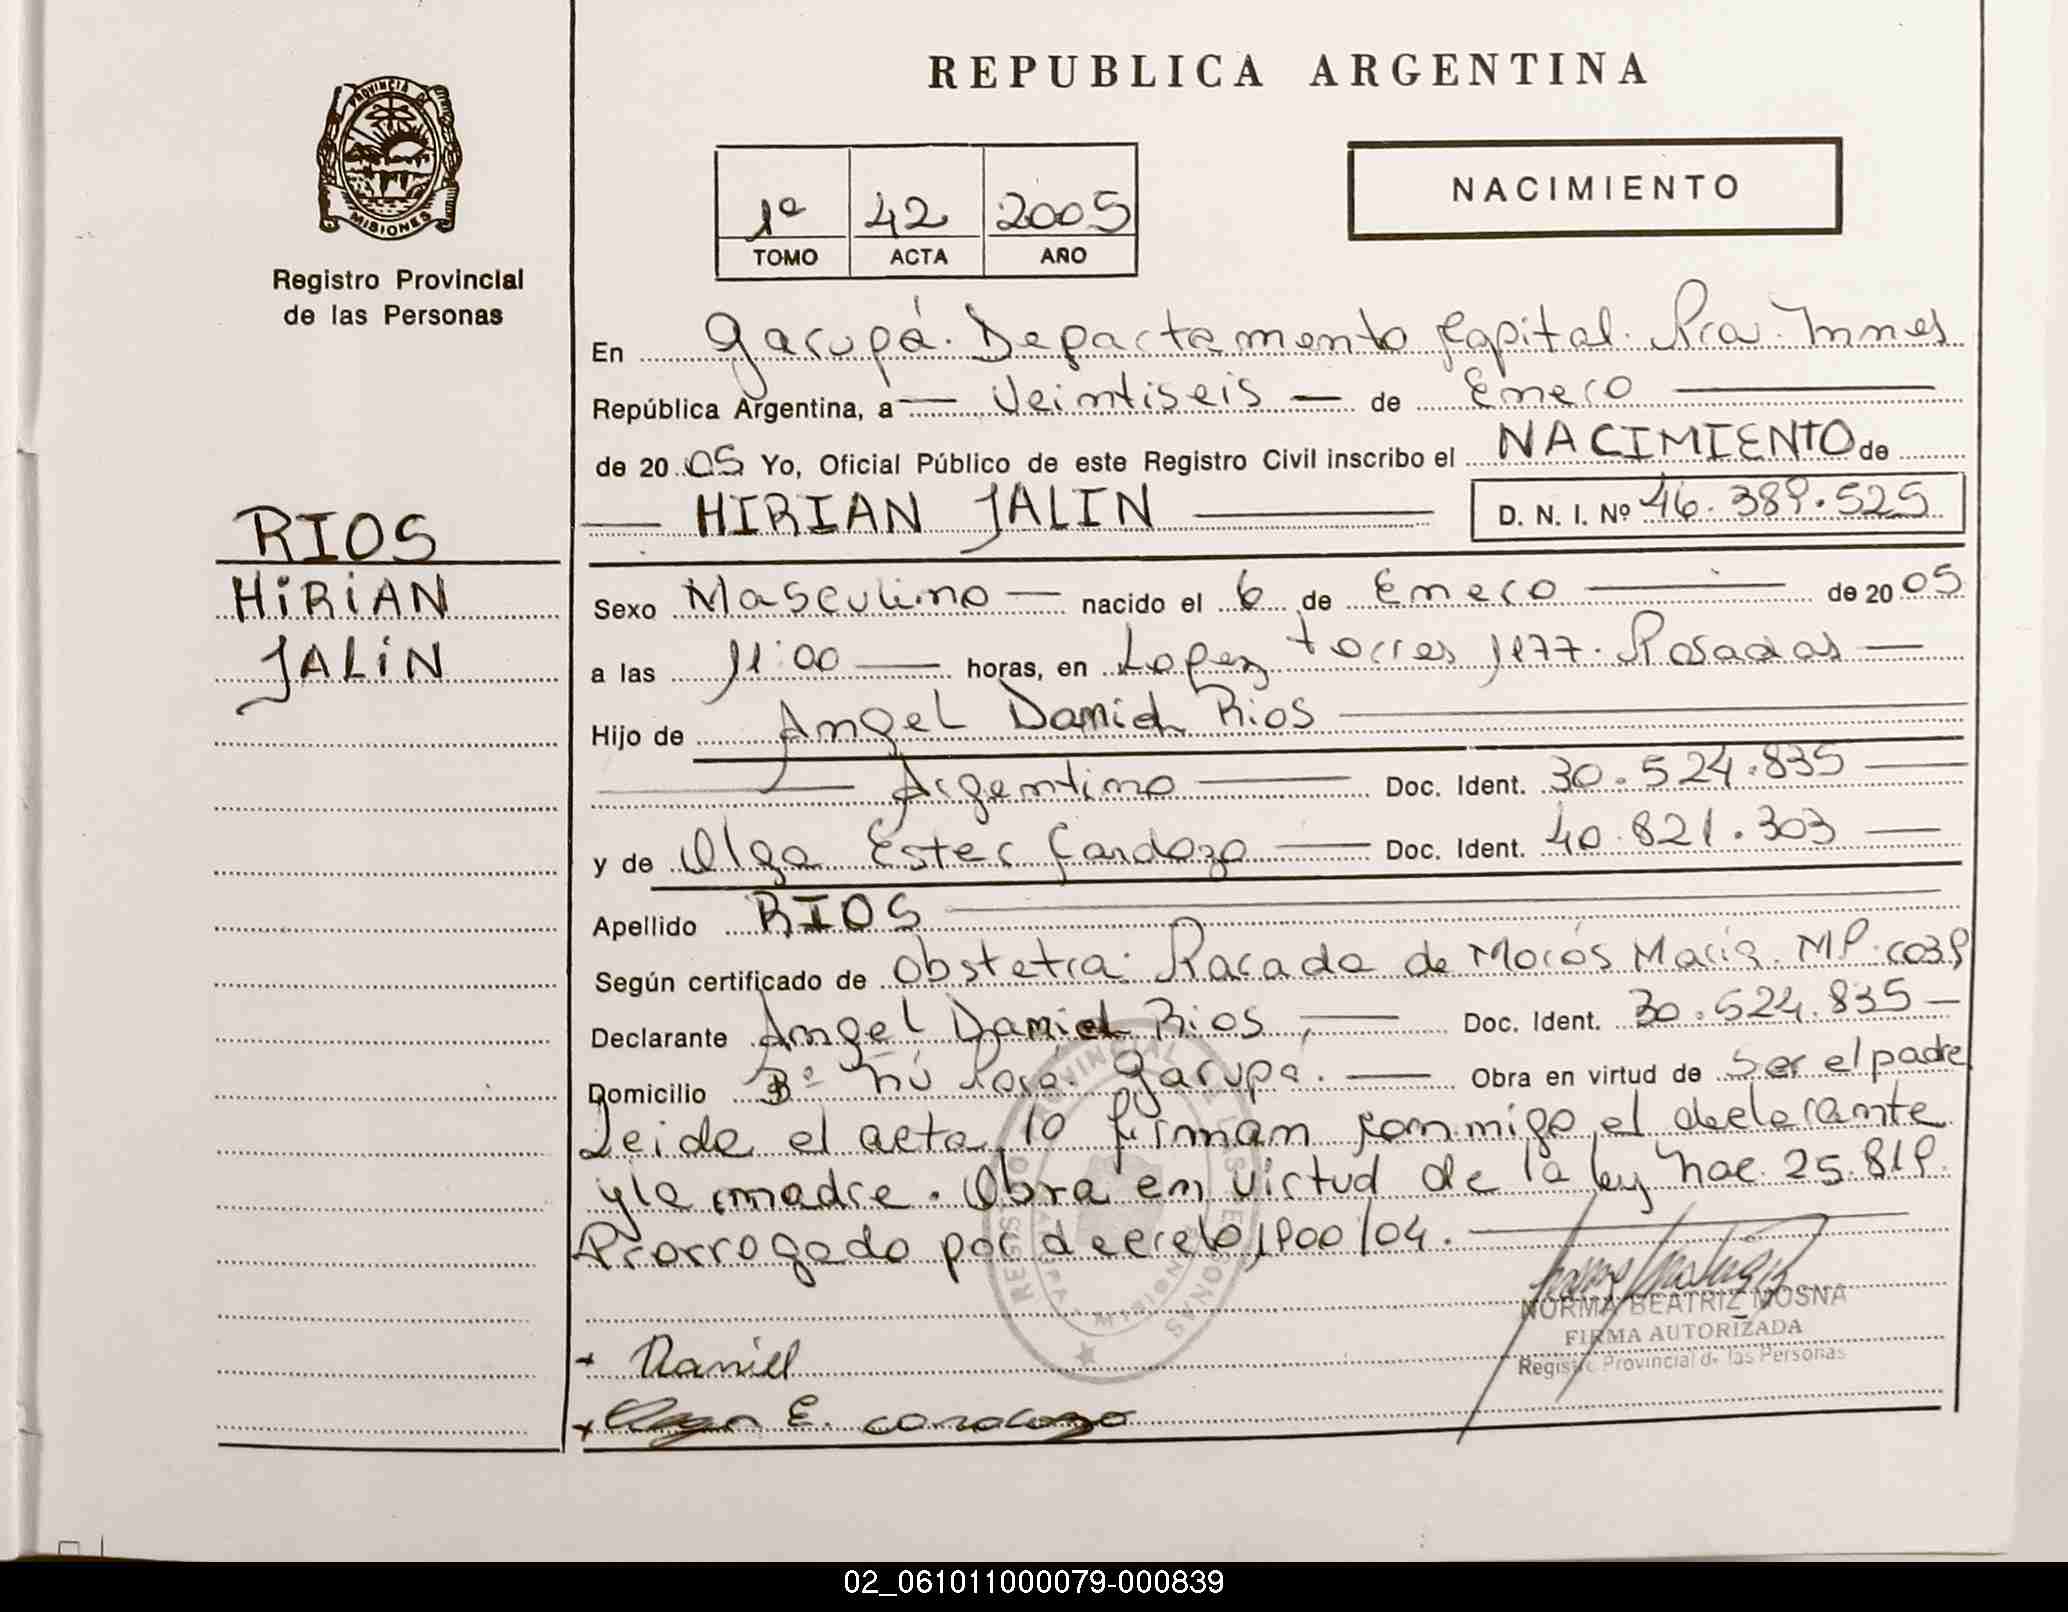 REPUBLICA ARGENTINA
PROVINCIA DE
MISIONES
Registro Provincial
de las Personas
1º 42 2005
TOMO ACTA AÑO
NACIMIENTO
En Garupá. Departamento Capital. Pcia.
República Argentina, a — Veintiseis — de Enero
de 20 05 Yo, Oficial Público de este Registro Civil inscribo el NACIMIENTO de
— HIRIAN JALIN — D. N. I. Nº 46.389.525
RIOS
HiRiAN
JALiN
Sexo Masculino — nacido el 6 de Enero — de 20 05
a las 11:00 — horas, en Lopez torres 1177. Posadas —
Hijo de Angel Daniel Rios —
— Argentino — Doc. Ident. 30.524.835 —
y de Olga Ester Cardozo — Doc. Ident. 40.821.303 —
Apellido RIOS —
Según certificado de Obstetra. Parada de Morós Maria. MP.
Declarante Angel Daniel Rios, — Doc. Ident. 30.524.835 —
Domicilio Bº Ñú Porá. Garupá. — Obra en virtud de Ser el padre
Leida el acta, la firman conmigo el declarante
y la madre. Obra en virtud de la ley nac. 25.819.
Prorrogado por decreto 1900/04. —
REGISTRO PROVINCIAL DE LAS PERSONAS
NORMA BEATRIZ MOSNA
FIRMA AUTORIZADA
Registro Provincial de las Personas
+ Daniel
+ Olga E. Cardozo
02_061011000079-000839